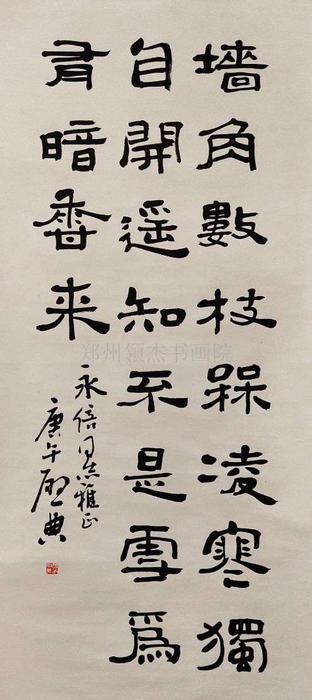 墙角數枝槑凌寒獨
自開遥知不是雪爲
有暗香来
永倍同志雅正
庚午典
郑州领杰书画院